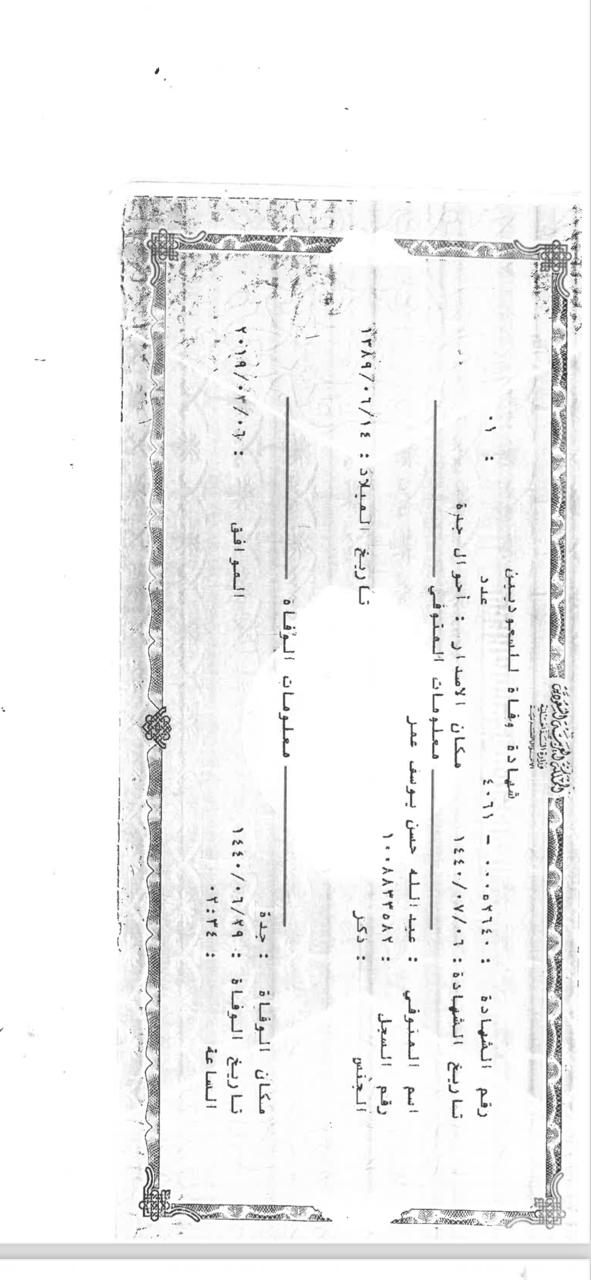 المملكة العربية السعودية
وزارة الداخلية
شهادة وفاة للسعوديين
رقم الشهادة : ٠٠٠٥٢٦٤٠ - ٤٠٦١ عدد : ٠١
تاريخ الشهادة : ١٤٤٠/٠٧/٠٦ مكان الاصدار : أحوال جدة
معلومات المتوفي
اسم المتوفي : عبدالله حسن يوسف عمر
رقم السجل : ١٠٠٨٨٣٣٥٨٢
الجنس : ذكر تاريخ الميلاد : ١٣٨٩/٠٦/١٤
معلومات الوفاة
مكان الوفاة : جدة
تاريخ الوفاة : ١٤٤٠/٠٦/٢٩ الموافق : ٢٠١٩/٠٣/٠٦
الساعة : ٠٢:٣٤